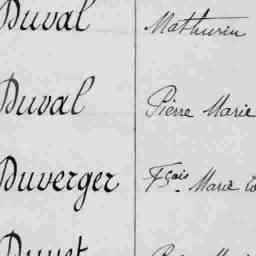 Duval Mathurin
Duval Pierre Marie
Duverger Fçois Marie